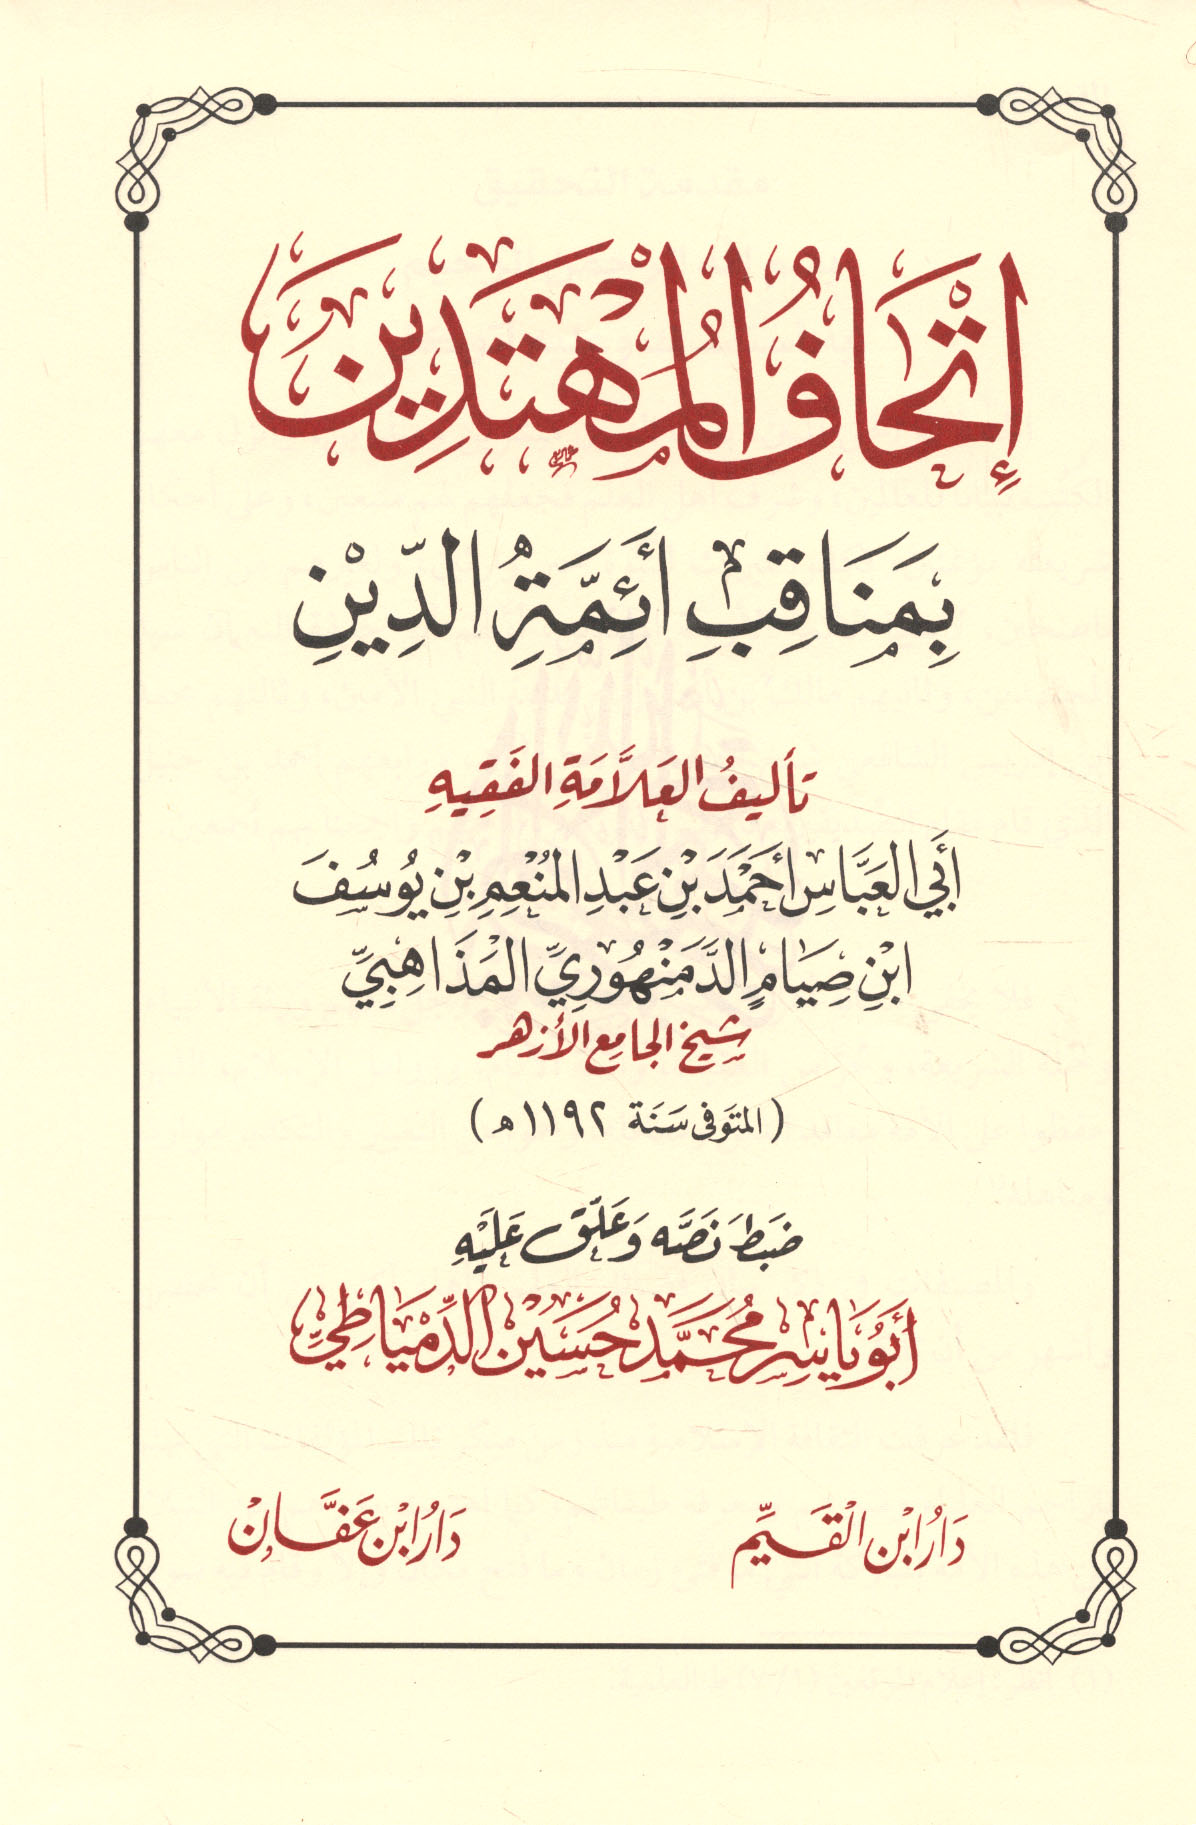 إِتْحَافُ الْمُهْتَدِينَ
بِمَنَاقِبِ أَئِمَّةِ الدِّيْنِ
تأليفُ العَلَّامَةِ الفَقِيهِ
أَبِي العَبَّاسِ أَحْمَدَ بْنِ عَبْدِ المُنْعِمِ بْنِ يُوسُفَ
ابْنِ صِيَامٍ الدَّمَنْهُورِيِّ المَذَاهِبِيِّ
شيخ الجامع الأزهر
(المتوَفى سَنَة ١١٩٢ هـ)
ضَبَطَ نَصَّه وَعَلّق عَلَيْهِ
أَبُو يَاسِر مُحَمَّد حُسَيْن الدِّمْيَاطِيّ
دَارُ ابْن الْقَيِّم
دَارُ ابْن عَفَّانْ